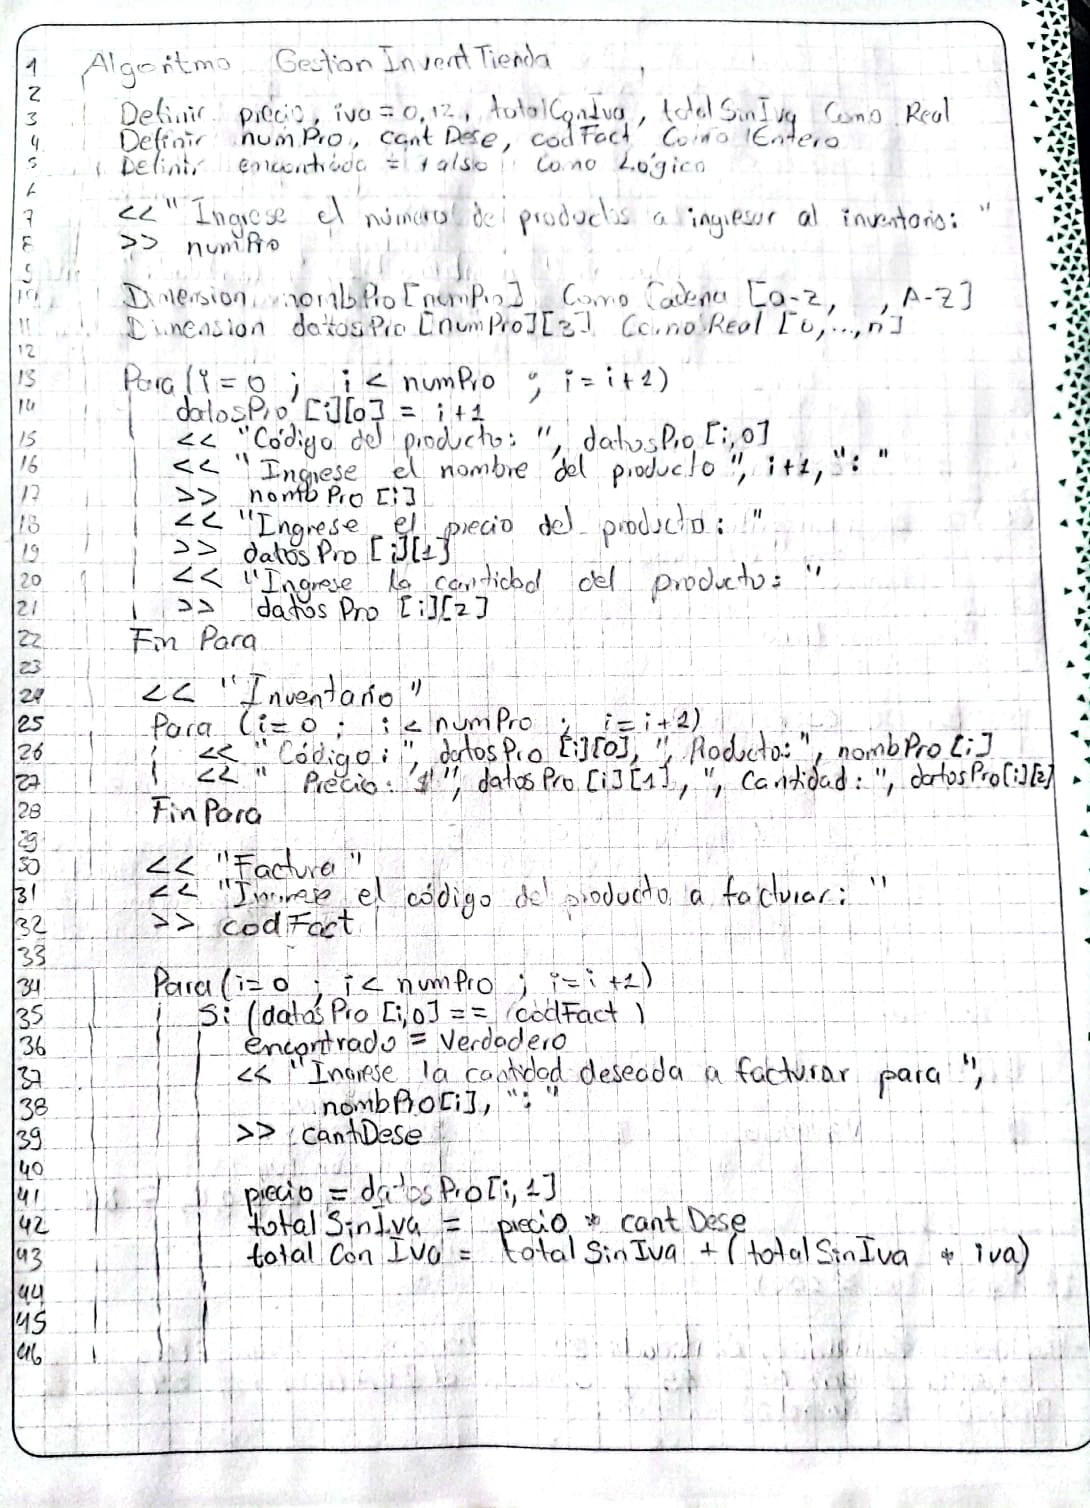 1 Algoritmo Gestion Invent Tienda
2
3 Definir precio, iva = 0,12, totalConIva, totalSinIva Como Real
4 Definir numPro, cantDese, codFact Como Entero
5 Definir encontrado = falso Como Lógico
6
7 << "Ingrese el número de productos a ingresar al inventario: "
8 >> numPro
9
10 Dimension nombPro [numPro] Como Cadena [a-z, , A-Z]
11 Dimension datosPro [numPro][3] Como Real [0,...,n]
12
13 Para (i = 0 ; i < numPro ; i = i+1)
14 datosPro [i][0] = i+1
15 << "Código del producto: ", datosPro [i,0]
16 << "Ingrese el nombre del producto ", i+1, ": "
17 >> nombPro [i]
18 << "Ingrese el precio del producto: "
19 >> datosPro [i][1]
20 << "Ingrese la cantidad del producto: "
21 >> datosPro [i][2]
22 Fin Para
23
24 << "Inventario"
25 Para (i=0 ; i < numPro ; i=i+1)
26 << "Código: ", datosPro [i][0], ", Producto: ", nombPro [i]
27 << " Precio: $", datosPro [i][1], ", Cantidad: ", datosPro[i][2]
28 Fin Para
29
30 << "Factura"
31 << "Ingrese el código del producto a facturar: "
32 >> codFact
33
34 Para (i=0 ; i < numPro ; i=i+1)
35 Si (datosPro [i,0] == codFact )
36 encontrado = Verdadero
37 << "Ingrese la cantidad deseada a facturar para ",
38 nombPro[i], ": "
39 >> cantDese
40
41 precio = datosPro[i,1]
42 totalSinIva = precio * cantDese
43 total Con Iva = totalSinIva + (totalSinIva * iva)
44
45
46